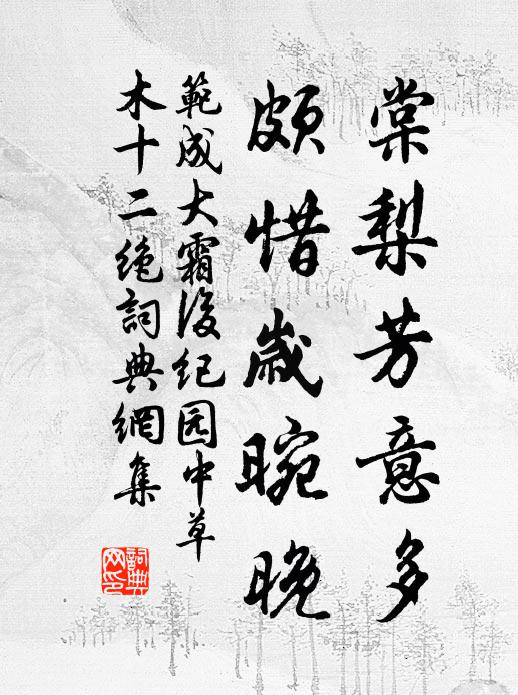 棠梨芳意多
頗惜歳晼晚
範成大霜後纪园中草
木十二绝詞典網集
詞典
网印